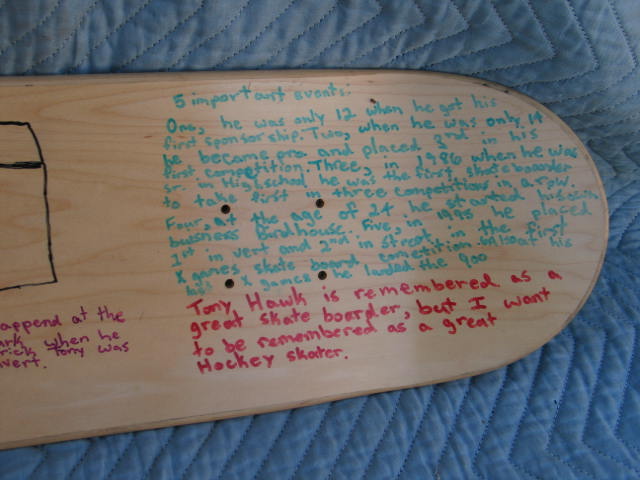 5 important events:
One, he was only 12 when he got his
first sponsorship. Two, when he was only 14
he became pro. and placed 3rd in his
first competition. Three, in 1986 when he was
sr. in Highschool he was the first skateboarder
to take first in three competitions in a row.
Four, at the age of 24 he started his own
buisness Birdhouse. Five, in 1995 he placed
1st in vert and 2nd in street in the first
X games skate board competition. at his
X games he landed the 900
Tony Hawk is remembered as a
great skate boarder, but I want
to be remembered as a great
Hockey skater.
append at the
ark when he
rick Tony was
vert.